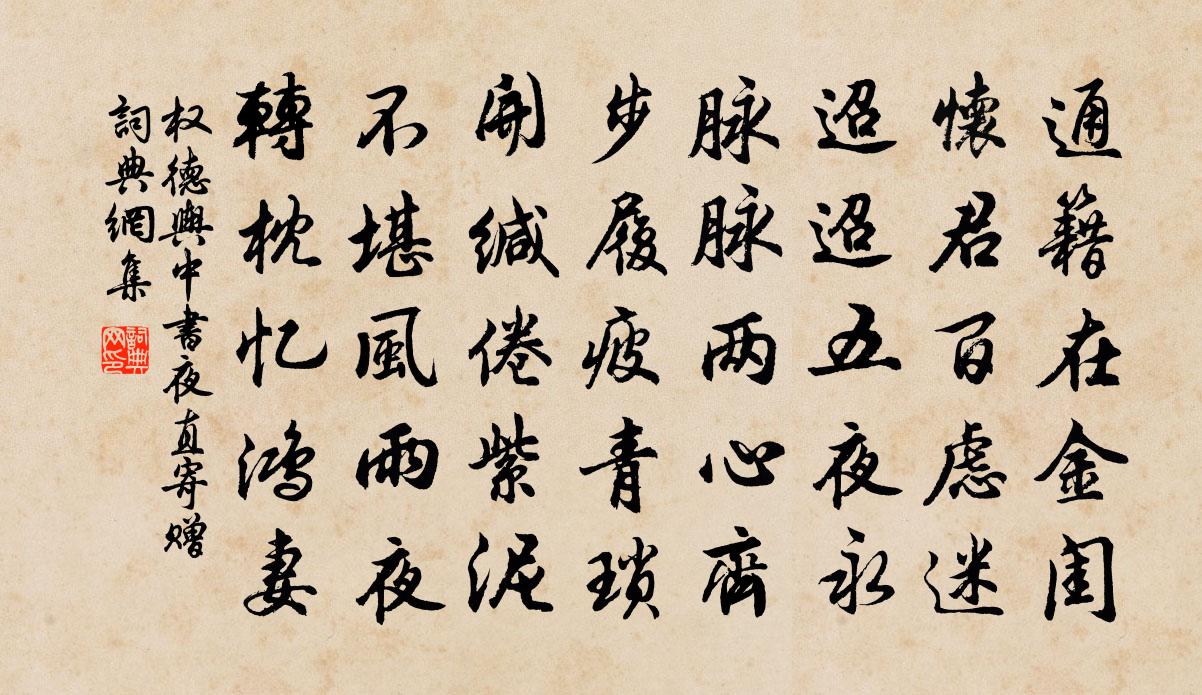 通籍在金閨
懷君百慮迷
迢迢五夜永
脉脉兩心齊
步履疲青瑣
開緘倦紫泥
不堪風雨夜
轉枕忆鴻妻
权德輿中書夜直寄赠
詞典網集
詞典网印